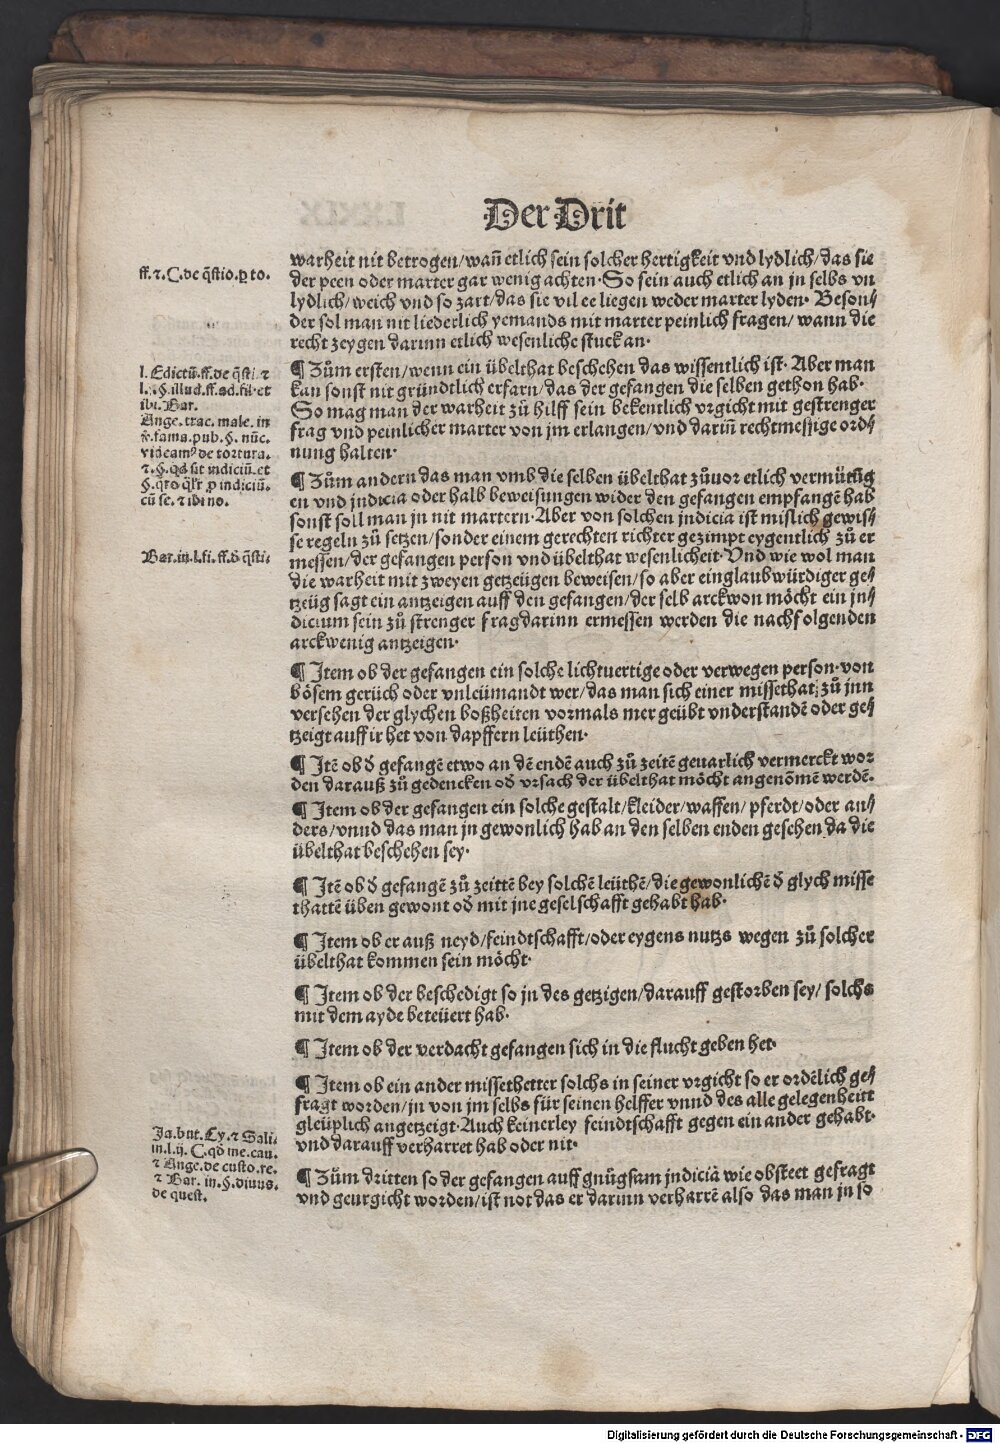 Der Drit
warheit nit betrogen/wañ etlich sein solcher hertigkeit vnd lydlich/das sie
der peen oder marter gar wenig achten. So sein auch etlich an jn selbs vn
lydlich/weich vnd so zart/das sie vil ee liegen weder marter lyden. Beson⸗
der sol man nit liederlich yemands mit marter peinlich fragen/ wann die
recht zeygen darinn etlich wesenliche stuck an.
¶ Zům ersten/wenn ein übelthat beschehen das wissentlich ist. Aber man
kan sonst nit gründtlich erfarn/das der gefangen die selben gethon hab.
So mag man der warheit zů hilff sein bekentlich vrgicht mit gestrenger
frag vnd peinlicher marter von jm erlangen/vnd dariñ rechtmessige ord⸗
nung halten.
¶ Zům andern das man vmb die selben übelthat zůuor etlich vermůtůg
en vnd jndicia oder halb beweisungen wider den gefangen empfangē hab
sonst soll man jn nit martern. Aber von solchen jndicia ist mislich gewis⸗
se regeln zů setzen/sonder einem gerechten richter gezimpt eygentlich zů er
messen/der gefangen person vnd übelthat wesenlicheit. Vnd wie wol man
die warheit mit zweyen getzeügen beweisen/so aber ein glaubwürdiger ge⸗
tzeüg sagt ein antzeigen auff den gefangen/der selb arckwon möcht ein jn⸗
dicium sein zů strenger frag darinn ermessen werden die nachfolgenden
arckwenig antzeigen.
¶ Item ob der gefangen ein solche lichtuertige oder verwegen person. von
bösem gerüch oder vnleümandt wer/das man sich einer missethat zů jnn
versehen der glychen boßheiten vormals mer geübt vnderstandē oder ge⸗
tzeigt auff ir het von dapffern leüthen.
¶ Itē ob d̕ gefangē etwo an dē endē auch zů zeitē geuarlich vermerckt wor
den darauß zů gedencken od̕ vrsach der übelthat möcht angenōmē werdē.
¶ Item ob der gefangen ein solche gestalt/kleider/waffen/pferdt/oder an⸗
ders/vnnd das man jn gewonlich hab an den selben enden gesehen da die
übelthat beschehen sey.
¶ Itē ob d̕ gefangē zů zeittē bey solchē leüthē/die gewonlichē d̕ glych misse
thattē üben gewont od̕ mit jne geselschafft gehabt hab.
¶ Item ob er auß neyd/feindtschafft/oder eygens nutzs wegen zů solcher
übelthat kommen sein möcht.
¶ Item ob der beschedigt so jn des getzigen/darauff gestorben sey/ solchs
mit dem ayde beteüert hab.
¶ Item ob der verdacht gefangen sich in die flucht geben het.
¶ Item ob ein ander missethetter solchs in seiner vrgicht so er ordēlich ge⸗
fragt worden/jn von jm selbs für seinen helffer vnnd des alle gelegenheitt
gleüplich angetzeigt. Auch keinerley feindtschafft gegen ein ander gehabt.
vnd darauff verharret hab oder nit.
¶ Zům dritten so der gefangen auff gnůgsam jndicia wie obsteet gefragt
vnd geurgicht worden/ist not das er darinn verharrē also das man jn so
ff. ⁊. C. de q̄stio. ꝑ to.
l. Edictū. ff. de q̄sti. ⁊
l. j. §. illud. ff. ad. sil. et
ibi. Bar.
Ange. trac. male. in
fama. pub. §. nūc.
videamꝰ de tortura.
⁊. §. qd̕ sit indiciū. et
§. qūo ꝑ indiciū.
cū se. ⁊ ibi no.
Bar. in. l. fi. ff. d̕ q̄sti.
Ja. but. Cy. ⁊ Sali.
in. l. ij. C. qd̕ me. cau.
⁊ Ange. de custo. re.
⁊ Bar. in. §. diuus.
de quest.
Digitalisierung gefördert durch die Deutsche Forschungsgemeinschaft - DFG